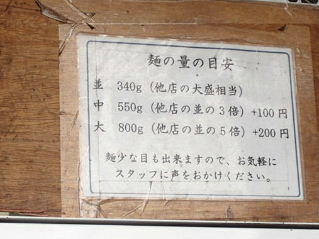 麺の量の目安
並 340g（他店の大盛相当）
中 550g（他店の並の3倍）+100円
大 800g（他店の並の5倍）+200円
麺少な目も出来ますので、お気軽に
スタッフに声をおかけください。